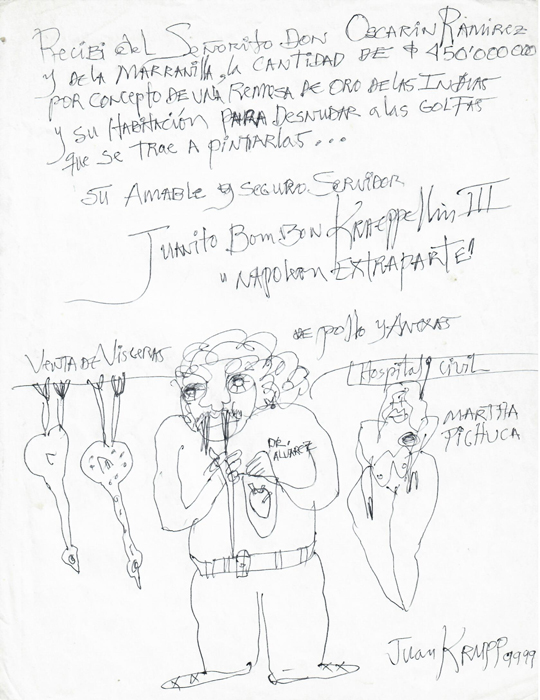 Recibí del Señorito Don Oscarin Ramirez
y de la Marranilla, la cantidad de $ 450'000000
por concepto de una remesa de oro de las Indias
y su habitación para desnudar a las golfas
que se trae a pintarlas...
Su amable y seguro servidor
Juanito BomBon Kraeppellin III
"Napoleon Extraparte"
Venta de Visceras
de pollo y anexas
Hospital civil
Dr. Alvarez
Martha
Pichuca
Juan Krupp 1999